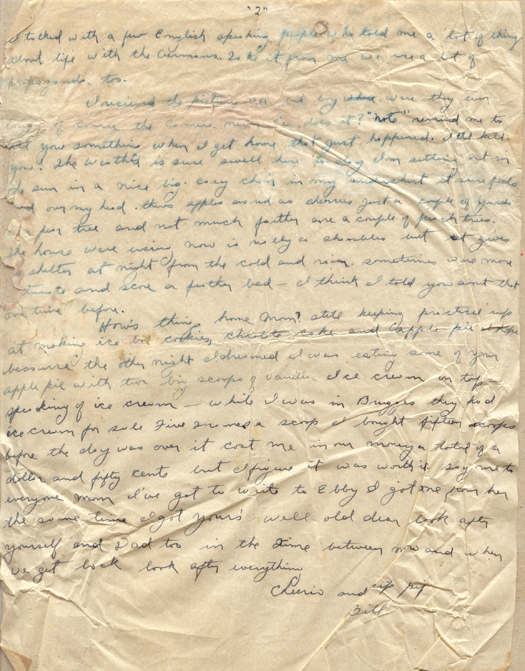 "2"
I talked with a few English speaking people who told me a lot of thing
about life with the Germans. Take it from me we use a lot of
propaganda too.
I received the pictures
of course the camera never "Note" remind me to
tell you something when I get home that just happened. I'll tell
you. The weather is sure swell here to day I'm sitting out in
the sun in a nice big easy chair in my undershirt it sure feels
and over my head. there apples as red as cherries just a couple of yards
a pear tree and not much farther are a couple of peach trees.
the house were using now is really a shambles but it give
shelter at night from the cold and rain. sometimes were more
and score a feather bed - I think I told you about that
one time before.
How's thing home Mom? still keeping practiced up
at making ice box cookies, chocolate cake and apple pie
because the other night I dreamed I was eating some of your
apple pie with two big scoops of vanilla Ice cream on top
speaking of ice cream - while I was in Bruges they had
ice cream for sale five francs a scoop I bought fifteen scoops
before the day was over it cost me in our money a total of a
dollar and fifty cents but I figure it was worth it. say me to
everyone mom I've got to write to Ebby I got one from her
the same time I got yours well old dear look after
yourself and Dad too in the time between now and when
we get back look after everything
Cheerio and pip pip
Bill